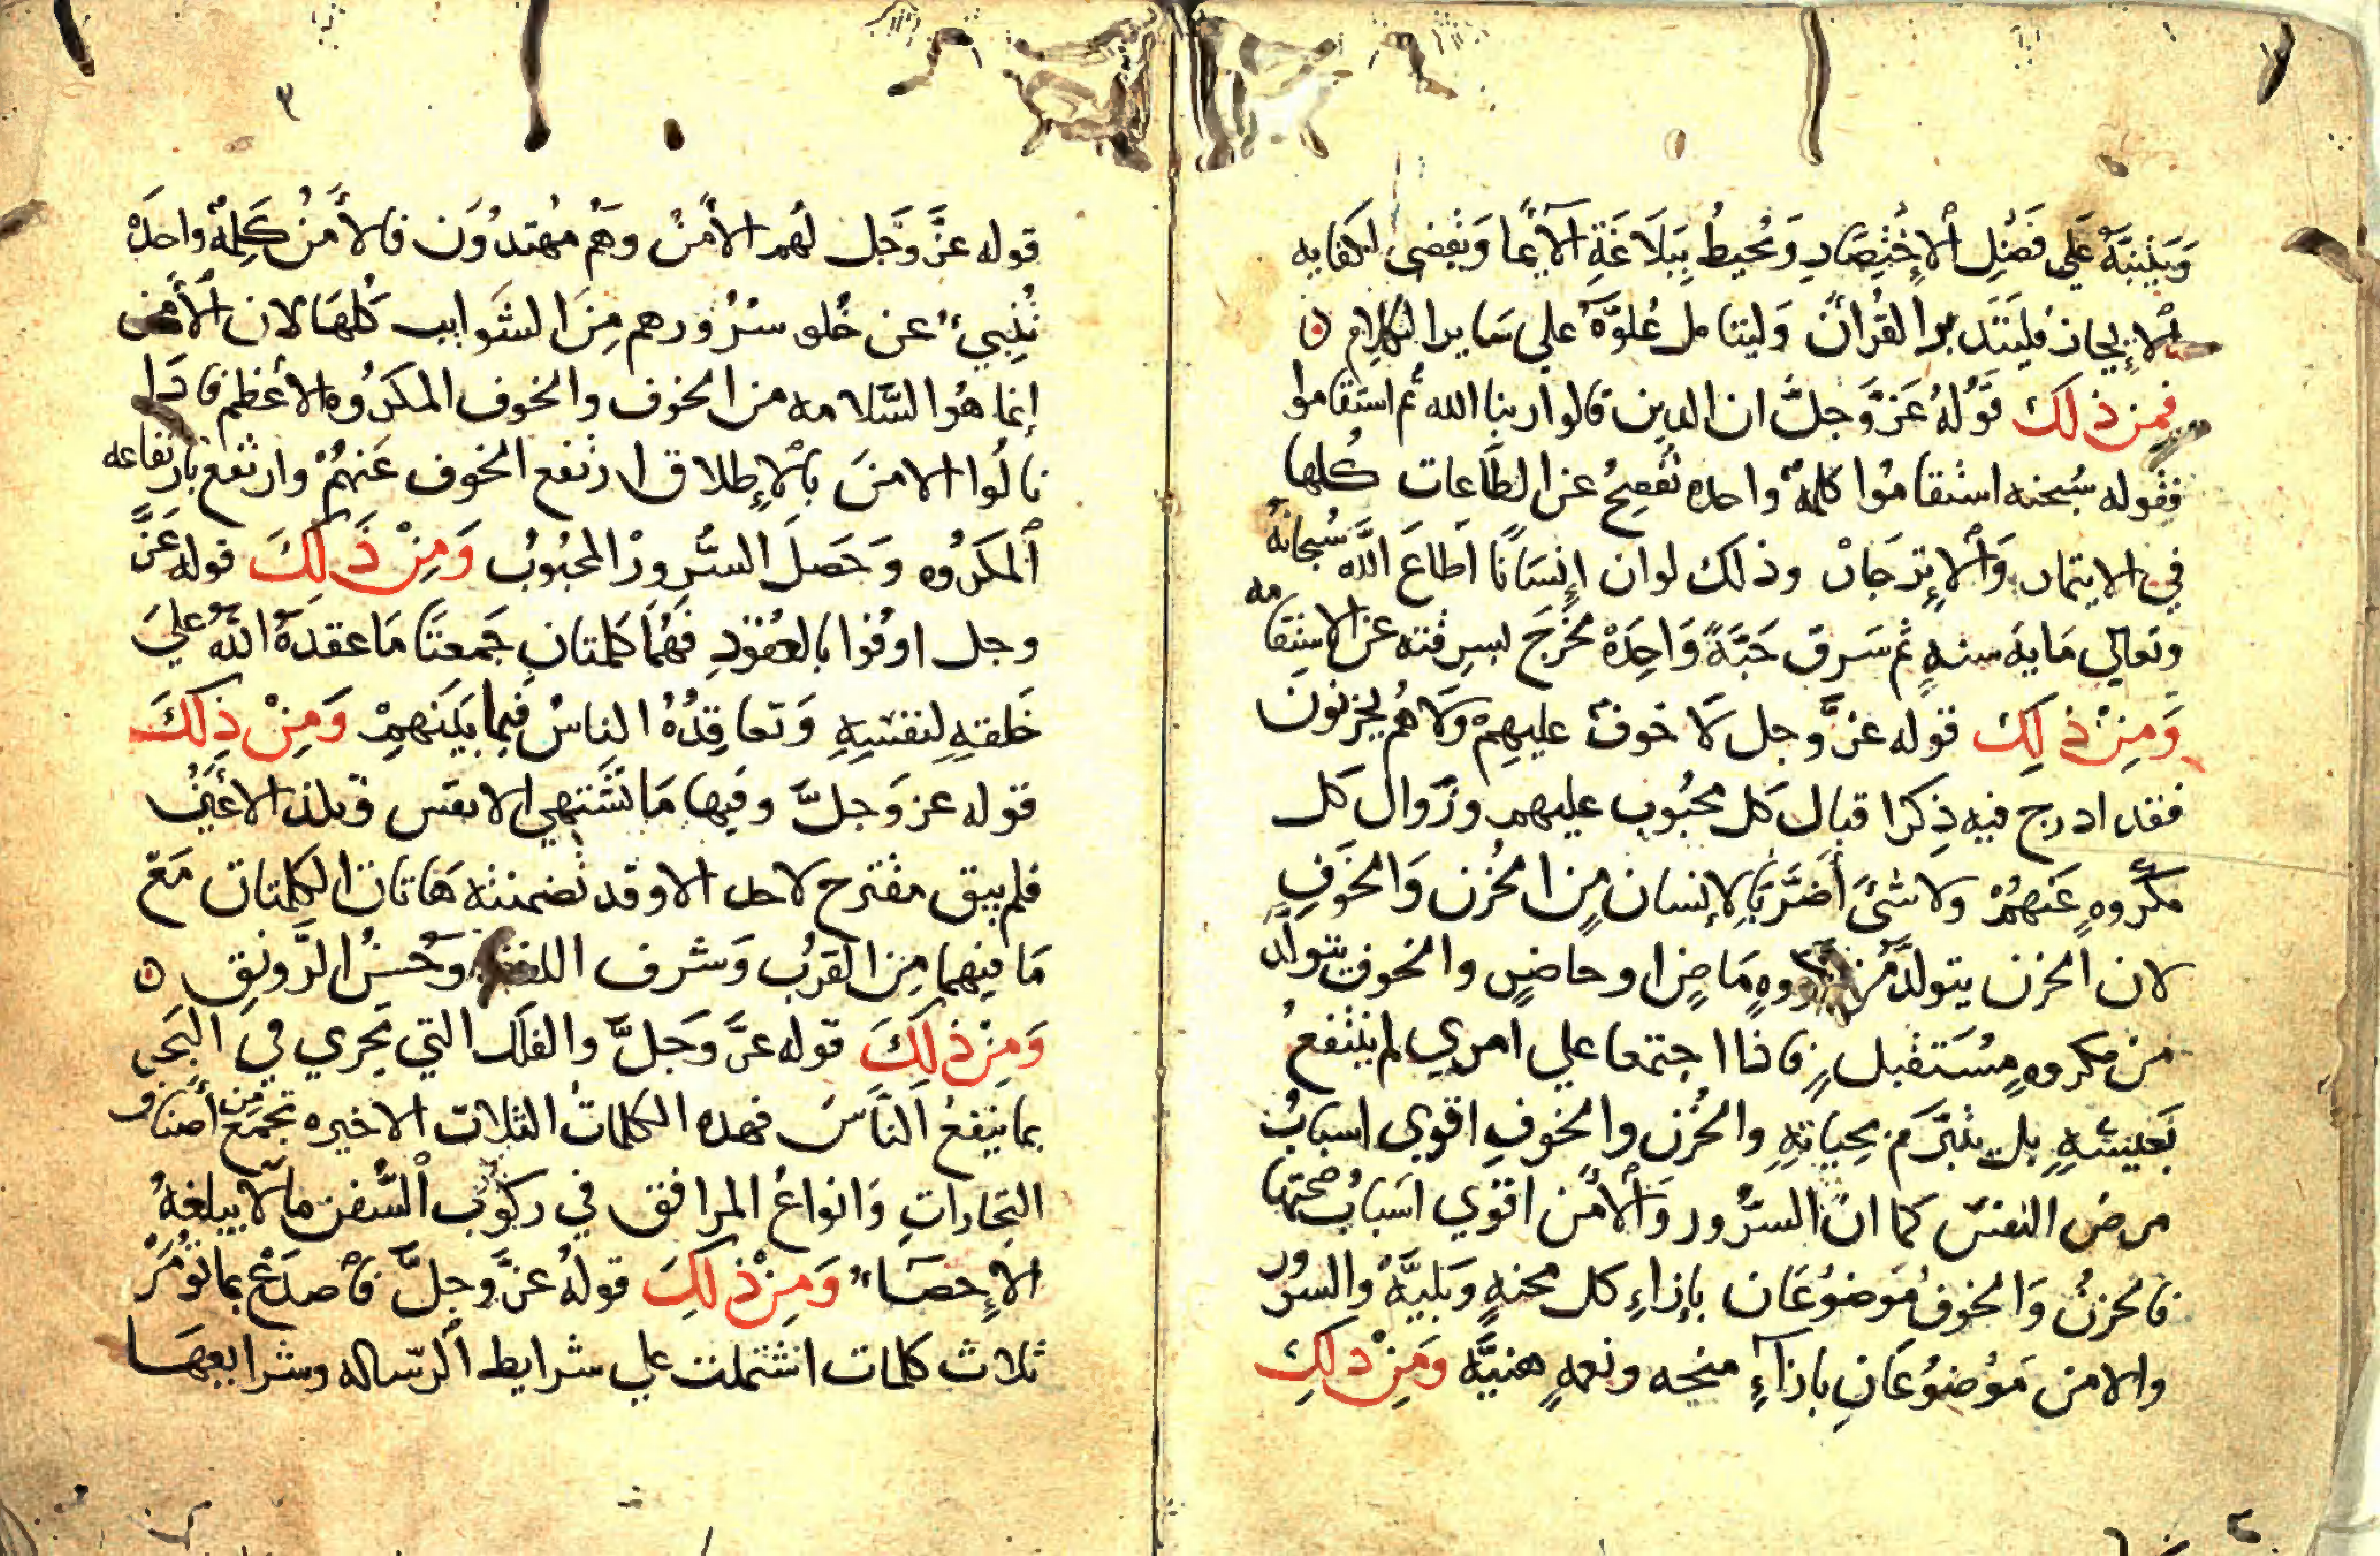 وَيَنْتَبِهَ عَلي فَضْلِ الاِخْتِصَارِ وَيُحيطُ بِبَلَاغَةِ الاِيمَا وَيَفضي لكفايه
الإيجاز فليَتَدبر القُرانَ وَليتامل عُلوَّهُ علي سَاير الكلام ٥
فمِن ذلكَ قَوْلهُ عَزَّ وَجلَّ ان الدين قالوا ربنا الله ثم استَقاموا
فقوله سُبحنه استقامُوا كلمة واحده تُفصِحُ عن الطَاعَات كُلها
في الايتمار وَالاِنْزِجَار وذلكَ لوان اِنسَانًا اَطاعَ اللَّه سُبحانهُ
وتعالي مَايه سنه ثم سَرقَ حَبَّةً وَاحِدَةً لخَرَجَ بسرقته عن الاستقامه
وَمِنْ ذلِكَ قوله عزَّ وجل لاَ خوفٌ عليهِمْ وَلاَ هُم يحزنونَ
فقد ادرج فيه ذِكرا قبال كل محبُوب عليهم وزَوال كل
مَكْروهٍ عَنهُمْ ولا شئَ اَضَرَّ بِالاِنسان مِن الحُزن وَالخَوفِ
لان الحزن يتولدُ من مكروهٍ مَاضٍ او حاضرٍ والخوف يتولَّد
من مكروهٍ مُسْتَقبل فاذا اجتمعا علي امري لم ينتفعْ
بَعيشهِ بل يتبَرَّم بحياتهِ والحُزن والخوفِ اقوي اسبابُ
مرض النفس كما انَّ السرُور وَالاَمن اقوي اسَبابُ صحتها
فالحزنُ وَالخوفُ مَوضوُعَان بإزاءِ كل محنهٍ وبَليَّةٍ والسرُور
والامن مَوْضوُعَانِ بازآءِ كل منحه ونعمهٍ هنيَّه ومِنْ ذلكِ
قوله عزَّ وَجَل لَهم الاَمْنُ وَهُم مُهتدُوَن فالاَمنُ كَلِمَةٌ واحدَة
تُنبِيءُ عن خُلو سرُورهم مِنَ الشَوايب كُلهَا لان الأمن
إنما هُوا السَّلامه من الخوف والخوف المكرُوه الأعظم فاذا
نالُوا الامنَ بالإطلاق ارتفع الخوف عَنهُمْ وارتفعَ بارتفاعه
المكرُوه وَحَصَلَ السُّرورُ المحبُوبُ وَمِنْ ذَلكَ قوله عَزَّ
وجل اوفُوا بالعقودِ فَهُمَا كلمتانِ جَمعتَا مَا عقدَهُ اللَّهُ عليَ
خَلقهِ لنفسِهِ وَتعاقدُهُ الناسُ فيما بَينَهمِ وَمِنْ ذلكَ
قوله عز وَجلَّ وفيها مَا تَشتَهي الانفس وتلذ الاعْينُ
فلم يبق مقترح لاحد الا وقد تضمنته هَاتان الكلمتان مَعَ
مَا فيهما مِن القربُ وَشرف اللفظ وَحُسْن الرَّونق ٥
وَمِنْ ذلكَ قوله عزَّ وَجَلَّ والفلك التي تَجري في البَحر
بما يَنفعُ النَّاسَ فهده الكلماتُ الثلاث الاخيره تجمعُ من أصناف
التجاراتِ وَانواعُ المرافق في ركوب السُّفن مالاَ يبلغهُ
الاِحصَاءُ وَمِنْ ذلكَ قولهُ عزَّ وجلَّ فاصدعْ بما تُؤمَرْ
ثلاث كلمات اشتملت علي شرايط الرساله وشرايعهَا